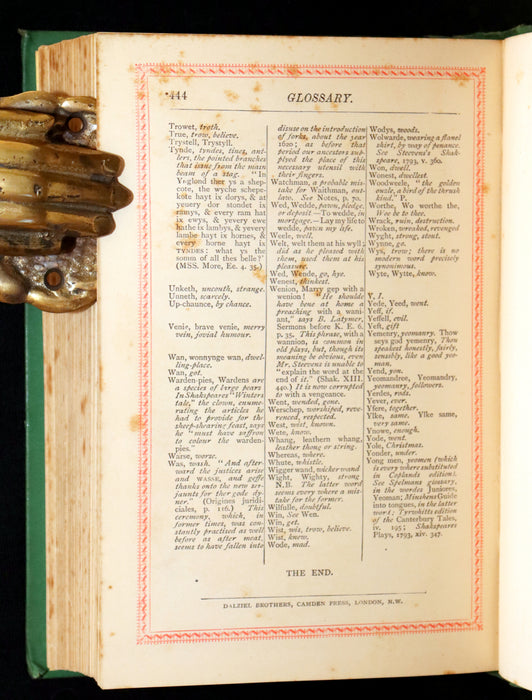 444
GLOSSARY.
Trowet, troth.
True, trow, believe.
Trystell, Trystyll.
Tynde, tyndes, tines, ant-
lers, the pointed branches
that issue from the main
beam of a stag. "In
Ynglond ther ys a shep-
cote, the wyche schepe-
kote hayt ix dorys, & at
yeuery dor stondet ix
ramys, & every ram hat
ix ewys, & yevery ewe
hathe ix lambys, & yevery
lambe hayt ix homes, &
every horne hayt ix
TYNDES: what ys the
somm of all thes belle?'
(MSS. More, Ee. 4. 35.)
Unketh, uncouth, strange.
Unneth, scarcely.
Up-chaunce, by chance.
Venie, brave venie, merry
vein, jovial humour.
Wan, wonnynge wan, dwel-
ling-place.
Wan, got.
Warden-pies, Wardens are
a species of large pears
In Shakspeares "Winters
tale," the clown, enume-
rating the articles he
had to provide for the
sheep-shearing feast, says
he "must have saffron
to colour the warden-
pies."
Warse, worse.
Was, wash. "And after-
ward the justices arise
and WASSE, and geffe
thanks onto the new ser-
jaunts for ther gode dy-
ner." (Origines juridi-
ciales, p. 116.) This
ceremony, which, in
former times, was con-
stantly practised as well
before as after meat,
seems to have fallen into
disuse on the introduction
of forks, about the year
1620; as before that
period our ancestors sup-
plyed the place of this
necessary utensil with
their fingers.
Watchman, a probable mis-
take for Waithman, out-
law. See Notes, p. 70.
Wed, Wedde, pawn, pledge,
or deposit.—To wedde, in
mortgage.—Lay my life to
wedde, pawn my life.
Weele, well.
Welt, welt them at his wyll;
did as he pleased with
them, used them at his
pleasure.
Wed, Wende, go, hye.
Wenest, thinkest.
Wenion, Marry gep with a
wenion! He shoulde
have bene at home a
preaching with a wani-
ant," says B. Latymer,
Sermons before K. E. 6.
p. 35. This phrase, with a
wannion, is common in
old plays, but, though its
meaning be obvious, even
Mr. Steevens is unable to
"explain the word at the
end of it." (Shak. XIII.
440.) It is now corrupted
to with a vengeance.
Went, wended, gone.
Werschep, worshiped, reve-
renced, respected.
West, wist, known.
Wete, know.
Whang, leathern whang,
leather thong or string.
Whereas, where.
Whute, whistle.
Wigger wand, wicker wand
Wight, Wighty, strong
N.B. The latter word
seems every where a mis-
take for the former.
Wilfulle, doubtful.
Win, See Wen.
Win, get.
Wist, wis, trow, believe.
Wist, knew.
Wode, mad.
Wodys, woods.
Wolwarde, wearing a flanel
shirt, by way of penance.
See Steevens's Shak-
speare, 1793, v. 360.
Won, dwell.
Wonest, dwellest.
Woodweele, "the golden
ouzle, a bird of the thrush
kind." P.
Worthe, Wo worthe the,
Woe be to thee.
Wrack, ruin, destruction.
Wroken, wreaked, revenged
Wyght, strong, stout.
Wynne, go.
Wys, trow; there is no
modern word precisely
synonimous.
Wyte, Wytte, know.
Y, I.
Yede, Yeed, went.
Yeff, if.
Yeffell, evil.
Yeft, gift
Yemenry, yeomanry. Thou
seys god yemenry, Thou
speakest honestly, fairly,
sensibly, like a good yeo-
man.
Yend, yon.
Yeomandree, Yeomandry,
yeomanry, followers.
Yerdes, rods.
Yever, ever.
Yfere, together.
Ylke, same. Ylke same,
very same.
Ynowe, enough.
Yode, went.
Yole, Christmas.
Yonder, under.
Yong men, yeomen (which
is every where substituted
in Coplands edition).
See Spelmans glossary,
in the wordes Juniores,
Yeoman; Minsheus Guide
into tongues, in the latter
word; Tyrwhitts edition
of the Canterbury Tales,
iv. 195; Shakspeares
Plays, 1793, xiv. 347.
THE END.
DALZIEL BROTHERS, CAMDEN PRESS, LONDON, N.W.